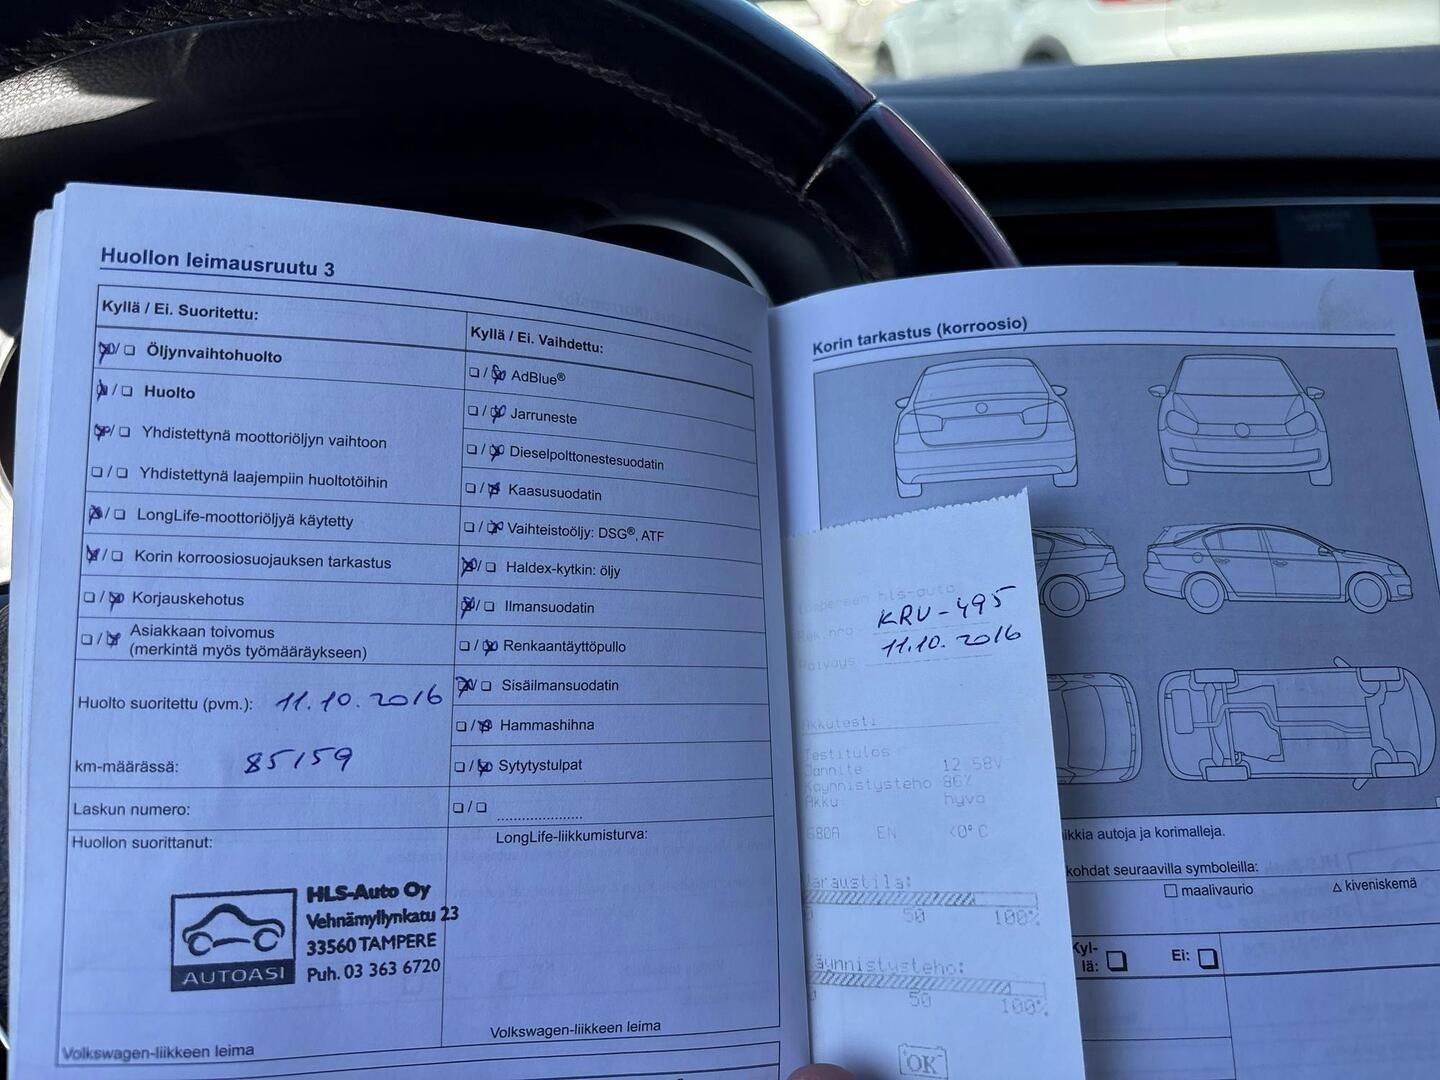 Huollon leimausruutu 3
Kyllä / Ei. Suoritettu:
Öljynvaihtohuolto
Huolto
Yhdistettynä moottoriöljyn vaihtoon
Yhdistettynä laajempiin huoltotöihin
LongLife-moottoriöljyä käytetty
Korin korroosiosuojauksen tarkastus
Korjauskehotus
Asiakkaan toivomus
(merkintä myös työmääräykseen)
Huolto suoritettu (pvm.): 11.10.2016
km-määrässä: 85159
Laskun numero:
Huollon suorittanut:
AUTOASI
HLS-Auto Oy
Vehnämyllynkatu 23
33560 TAMPERE
Puh. 03 363 6720
Volkswagen-liikkeen leima
Kyllä / Ei. Vaihdettu:
AdBlue®
Jarruneste
Dieselpolttonestesuodatin
Kaasusuodatin
Vaihteistoöljy: DSG®, ATF
Haldex-kytkin: öljy
Ilmansuodatin
Renkaantäyttöpullo
Sisäilmansuodatin
Hammashihna
Sytytystulpat
LongLife-liikkumisturva:
Volkswagen-liikkeen leima
Korin tarkastus (korroosio)
hls-auto
KRU-495
11.10.2016
Akkutesti
Testitulos
Jännite 12.58V
Käynnistysteho 86%
Akku: hyvä
680A EN <0°C
Varaustila:
0 50 100%
Käynnistysteho:
0 50 100%
OK
autoja ja korimalleja.
kohdat seuraavilla symboleilla:
maalivaurio
kiveniskemä
Kyl-
lä:
Ei: